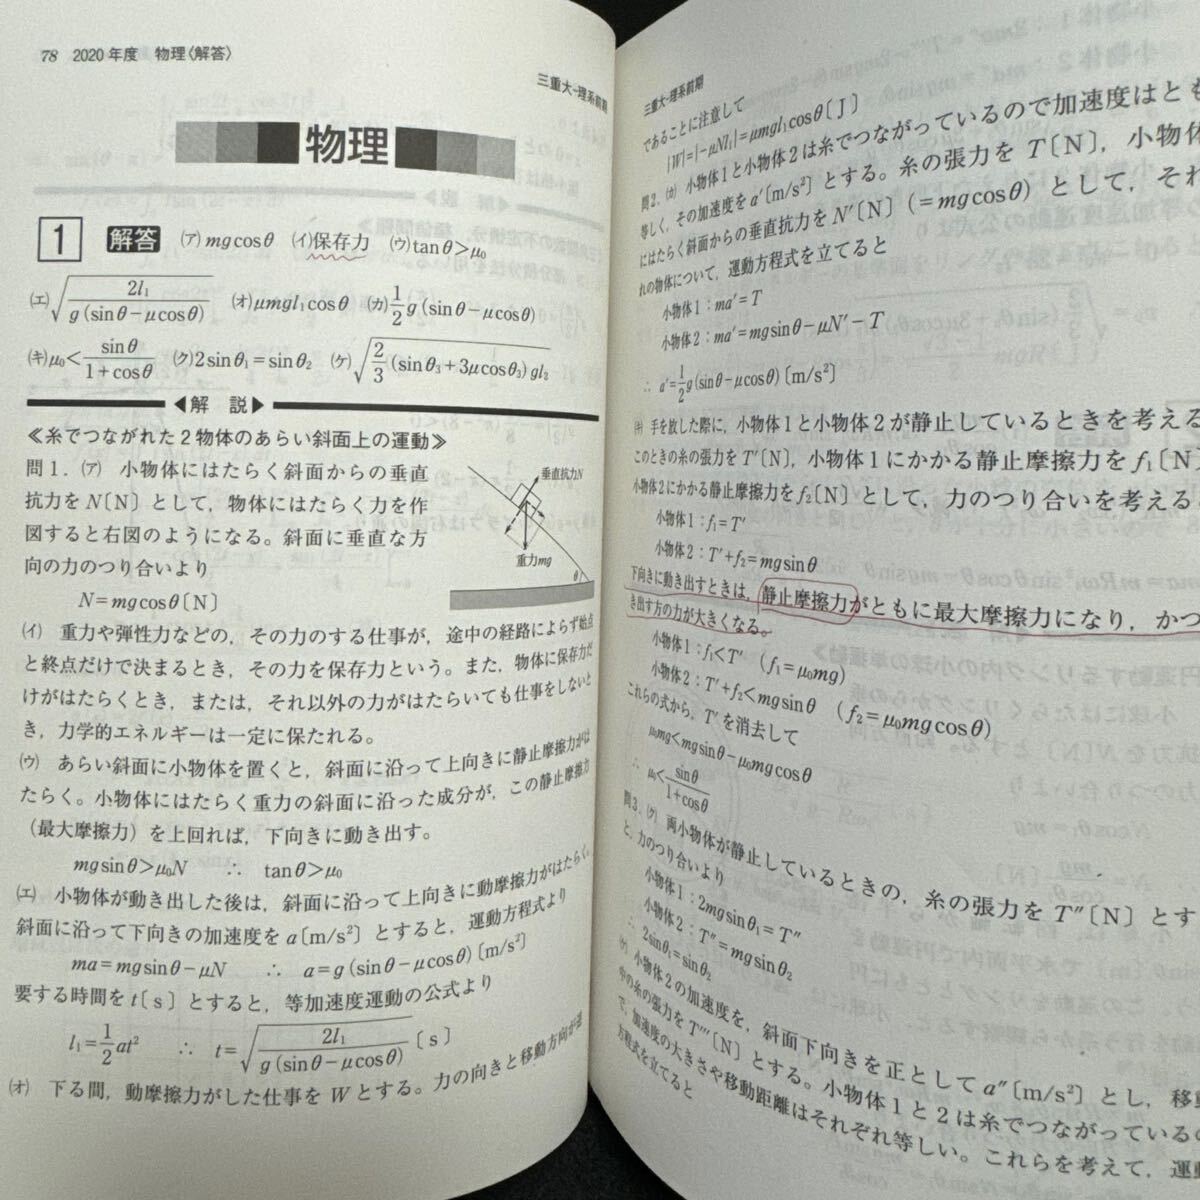 78 2020年度 物理〈解答〉
三重大-理系前期
物理
1 解答 (ア) mgcosθ (イ)保存力 (ウ)tanθ>μ₀
(エ)√(2l₁/(g(sinθ−μcosθ))) (オ)μmgl₁cosθ (カ)1/2 g(sinθ−μcosθ)
(キ)μ₀<sinθ/(1+cosθ) (ク)2sinθ₁=sinθ₂ (ケ)√(2/3 (sinθ₃+3μcosθ₃)gl₂)
◀解 説▶
≪糸でつながれた2物体のあらい斜面上の運動≫
問1.(ア) 小物体にはたらく斜面からの垂直
抗力をN〔N〕として，物体にはたらく力を作
図すると右図のようになる。斜面に垂直な方
向の力のつり合いより
N=mgcosθ〔N〕
垂直抗力N
重力mg
θ
(イ) 重力や弾性力などの，その力のする仕事が，途中の経路によらず始点
と終点だけで決まるとき，その力を保存力という。また，物体に保存力だ
けがはたらくとき，または，それ以外の力がはたらいても仕事をしないと
き，力学的エネルギーは一定に保たれる。
(ウ) あらい斜面に小物体を置くと，斜面に沿って上向きに静止摩擦力がは
たらく。小物体にはたらく重力の斜面に沿った成分が，この静止摩擦力
（最大摩擦力）を上回れば，下向きに動き出す。
mgsinθ>μ₀N ∴ tanθ>μ₀
(エ) 小物体が動き出した後は，斜面に沿って上向きに動摩擦力がはたらく。
斜面に沿って下向きの加速度をa〔m/s²〕とすると，運動方程式より
ma=mgsinθ−μN ∴ a=g(sinθ−μcosθ)〔m/s²〕
要する時間をt〔s〕とすると，等加速度運動の公式より
l₁=1/2 at² ∴ t=√(2l₁/(g(sinθ−μcosθ)))〔s〕
(オ) 下る間，動摩擦力がした仕事をWとする。力の向きと移動方向が逆
三重大-理系前期
であることに注意して
|W|=|−μNl₁|=μmgl₁cosθ〔J〕
問2.(カ) 小物体1と小物体2は糸でつながっているので加速度はとも
等しく，その加速度をa′〔m/s²〕とする。糸の張力をT〔N〕，小物体
にはたらく斜面からの垂直抗力をN′〔N〕(=mgcosθ)として，それ
れの物体について，運動方程式を立てると
小物体1：ma′=T
小物体2：ma′=mgsinθ−μN′−T
∴ a′=1/2 g(sinθ−μcosθ)〔m/s²〕
(キ) 手を放した際に，小物体1と小物体2が静止しているときを考える
このときの糸の張力をT′〔N〕，小物体1にかかる静止摩擦力をf₁〔N〕
小物体2にかかる静止摩擦力をf₂〔N〕として，力のつり合いを考える
小物体1：f₁=T′
小物体2：T′+f₂=mgsinθ
下向きに動き出すときは，静止摩擦力がともに最大摩擦力になり，かつ
き出す方の力が大きくなる。
小物体1：f₁<T′ (f₁=μ₀mg)
小物体2：T′+f₂<mgsinθ (f₂=μ₀mgcosθ)
これらの式から，T′を消去して
μ₀mg<mgsinθ−μ₀mgcosθ
∴ μ₀<sinθ/(1+cosθ)
問3.(ク) 両小物体が静止しているときの，糸の張力をT″〔N〕とす
と，力のつり合いより
小物体1：2mgsinθ₁=T″
小物体2：T″=mgsinθ₂
∴ 2sinθ₁=sinθ₂
(ケ) 小物体2の加速度を，斜面下向きを正としてa″〔m/s²〕とし，移動
中の糸の張力をT‴〔N〕とする。小物体1と2は糸でつながっているの
で，加速度の大きさや移動距離はそれぞれ等しい。これらを考えて，運動
方程式を立てると